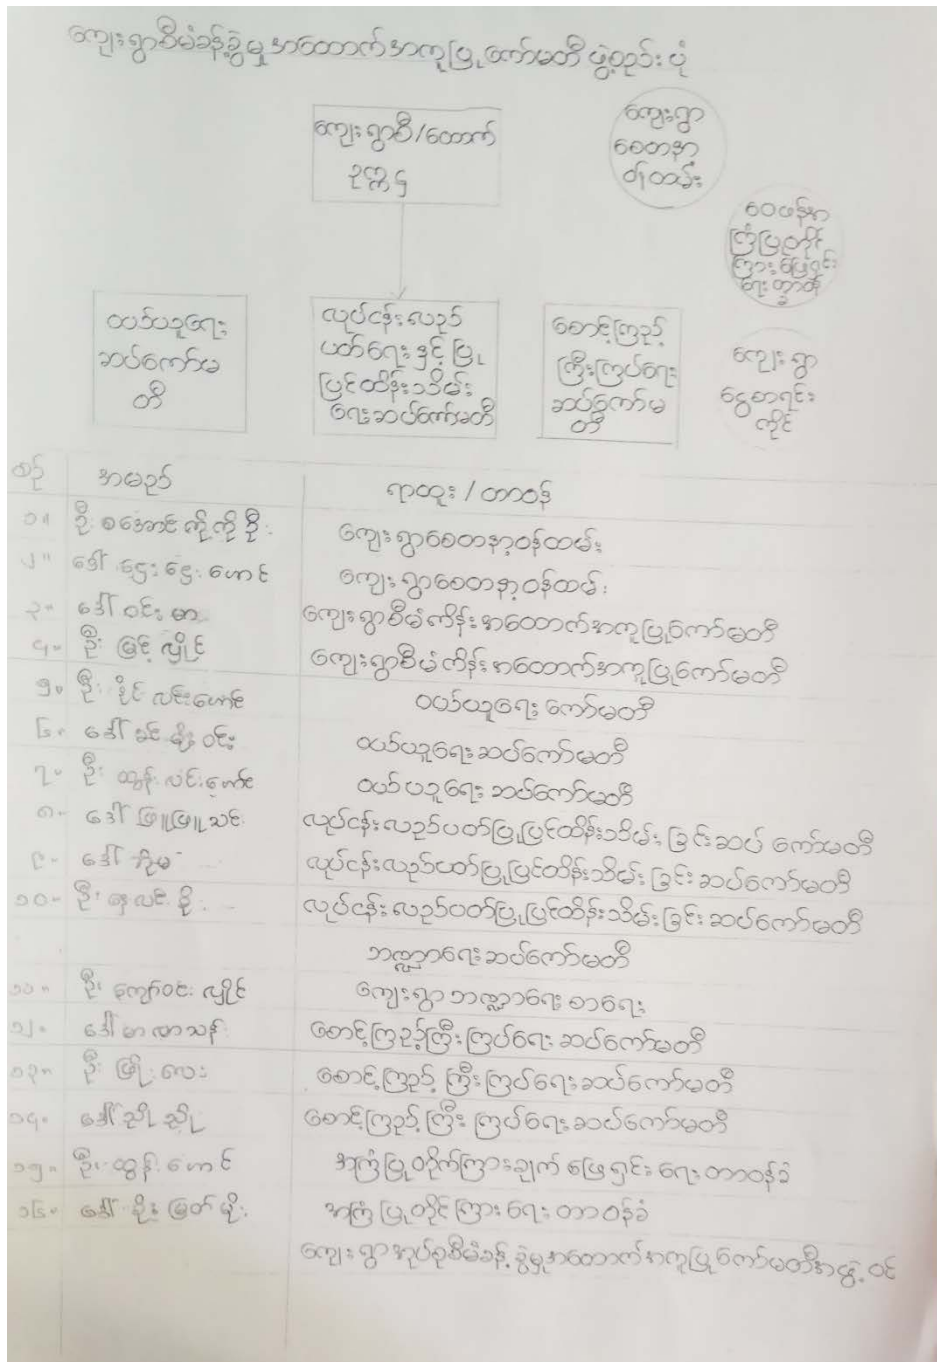 ကျေးရွာစီမံခန့်ခွဲမှုအထောက်အကူပြုကော်မတီ ဖွဲ့စည်းပုံ
ကျေးရွာစီ/ထောက်
ဥက္ကဌ
ကျေးရွာ
စေတနာ့
ဝန်ထမ်း
ဝေဖန်စာ
ကြံပြုတိုင်
ကြားဖြေရှင်း
ရေး တာဝန်
ဝယ်ယူရေး
ဆပ်ကော်မ
တီ
လုပ်ငန်းလည်
ပတ်ရေးနှင့် ပြု
ပြင်ထိန်းသိမ်း
ရေးဆပ်ကော်မတီ
စောင့်ကြည့်
ကြီးကြပ်ရေး
ဆပ်ကော်မ
တီ
ကျေးရွာ
ငွေစာရင်း
ကိုင်
စဉ် အမည် ရာထူး / တာဝန်
၁။ ဦးစအောင်ကိုကိုဦး ကျေးရွာစေတနာ့ဝန်ထမ်း
၂။ ဒေါ်ဌေးဌေးဟောင် ကျေးရွာစေတနာ့ဝန်ထမ်း
၃။ ဒေါ်ဝင်းမာ ကျေးရွာစီမံကိန်းအထောက်အကူပြုကော်မတီ
၄။ ဦးမြင့်လှိုင် ကျေးရွာစီမံကိန်းအထောက်အကူပြုကော်မတီ
၅။ ဦးနိုင်လင်းဟောင် ဝယ်ယူရေးကော်မတီ
၆။ ဒေါ်ခင်မို့ဝင်း ဝယ်ယူရေးဆပ်ကော်မတီ
၇။ ဦးထွန်းလင်းဟောင် ဝယ်ယူရေးဆပ်ကော်မတီ
၈။ ဒေါ်ဖြူဖြူသင်း လုပ်ငန်းလည်ပတ်ပြုပြင်ထိန်းသိမ်းခြင်းဆပ်ကော်မတီ
၉။ ဒေါ်ဘိုမ လုပ်ငန်းလည်ပတ်ပြုပြင်ထိန်းသိမ်းခြင်းဆပ်ကော်မတီ
၁၀။ ဦးနေလင်းစိုး လုပ်ငန်းလည်ပတ်ပြုပြင်ထိန်းသိမ်းခြင်းဆပ်ကော်မတီ
ဘဏ္ဍာရေးဆပ်ကော်မတီ
၁၁။ ဦးကျော်ဝင်းလှိုင် ကျေးရွာဘဏ္ဍာရေးစာရေး
၁၂။ ဒေါ်မာလာသန်း စောင့်ကြည့်ကြီးကြပ်ရေးဆပ်ကော်မတီ
၁၃။ ဦးဖြိုးလေး စောင့်ကြည့်ကြီးကြပ်ရေးဆပ်ကော်မတီ
၁၄။ ဒေါ်ညိုညို စောင့်ကြည့်ကြီးကြပ်ရေးဆပ်ကော်မတီ
၁၅။ ဦးထွန်းဟောင် အကြံပြုတိုက်ကြားချက်ဖြေရှင်းရေးတာဝန်ခံ
၁၆။ ဒေါ်စိုးမြတ်မိုး အကြံပြုတိုင်ကြားရေးတာဝန်ခံ
ကျေးရွာအုပ်စုစီမံခန့်ခွဲမှုအထောက်အကူပြုကော်မတီအဖွဲ့ဝင်